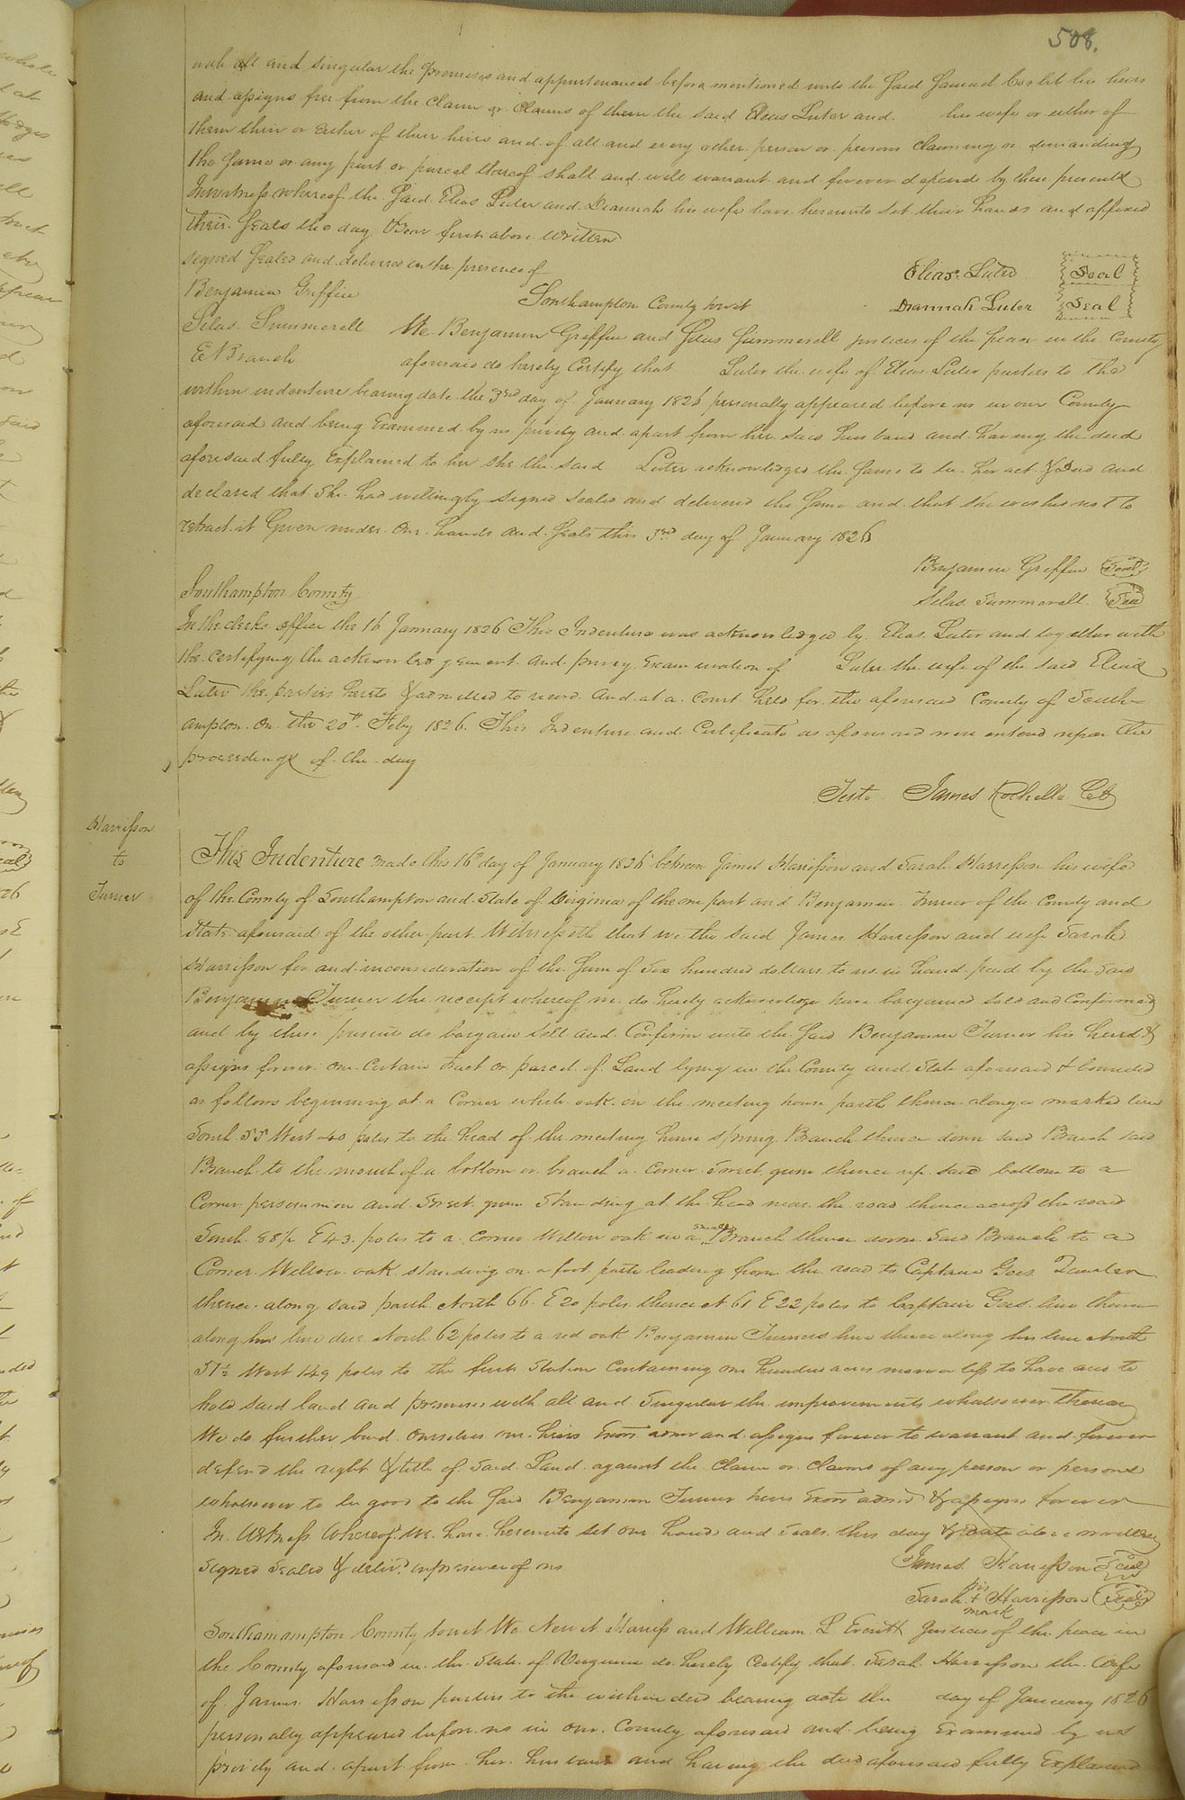 508.
with all and singular the premises and appurtenances before mentioned unto the Said his heirs
and assigns free from the Claim or Claims of them the said Elias Luter and his wife or either of
them their or either of their heirs and of all and every other person or persons Claiming or demanding
the Same or any part or parcel thereof shall and will warrant and forever defend by these presents
In witness whereof the Said Elias Luter and Dannah his wife have hereunto Set their hands and affixed
their Seals the day & year first above written
signed Sealed and delivered in the presence of
Elias Luter Seal
Benjamin Griffin
Southampton County towit
Dannah Luter Seal
Silas Summerell We Benjamin Griffin and Silas Summerell justices of the peace in the County
E Branch aforesaid do hereby Certify that Luter the wife of Elias Luter parties to the
within indenture bearing date the 3rd day of January 1826 personally appeared before us in our County
aforesaid and being Examined by us privily and apart from her said husband and having the deed
aforesaid fully Explained to her she the said Luter acknowledged the Same to be her act & deed and
declared that She had willingly signed sealed and delivered the Same and that she wishes not to
retract it Given under our hands and Seals this 3rd day of January 1826
Benjamin Griffin Seal
Silas Summerell Seal
Southampton County
In the clerks office the 16 January 1826 This Indenture was acknowledged by Elias Luter and together with
the Certifying the acknowledgement and privy Examination of Luter the wife of the said Elias
Luter the parties hereto & admitted to record And at a Court held for the aforesaid County of South-
ampton on the 20th Feby 1826 This Indenture and Certificate as aforesaid were entered upon the
proceedings of the day
Teste James Rochelle CC
Harrisson
to
Turner
This Indenture made this 16th day of January 1826 between James Harrisson and Sarah Harrisson his wife
of the County of Southampton and State of Virginia of the one part and Benjamin Turner of the County and
State aforesaid of the other part Witnesseth that we the said James Harrisson and wife Sarah
Harrisson for and in consideration of the Sum of Six hundred dollars to us in hand paid by the said
Benjamin Turner the receipt whereof we do hereby acknowledge have bargained Sold and Confirmed
and by these presents do bargain Sell and Confirm unto the Said Benjamin Turner his heirs &
assigns forever one Certain tract or parcel of Land lying in the County and State aforesaid & bounded
as follows beginning at a Corner white oak on the meeting house path thence along a marked line
South 55 West 40 poles to the head of the meeting house spring Branch thence down said Branch said
Branch to the mouth of a bottom or branch a Corner Sweet gum thence up said bottom to a
Corner persimmon and Sweet gum Standing at the head near the road thence across the road
South 88½ E 43 poles to a Corner Willow oak in a small Branch thence down Said Branch to a
Corner Willow oak standing on a foot path leading from the road to Captain Gees
thence along said path North 66 E 20 poles thence N 61 E 22 poles to Captain Gees line thence
along his line due North 62 poles to a red oak Benjamin Turners line thence along his line North
51½ West 149 poles to the first Station Containing one hundred acres more or less to have and to
hold said land and premises with all and Singular the improvements whatsoever thereon
We do further bind ourselves our heirs Exors admrs and assigns forever to warrant and forever
defend the right & title of Said Land against the Claim or Claims of any person or persons
whatsoever to be good to the Said Benjamin Turner heirs Exors admrs & assigns forever
In Witness Whereof We have hereunto Set our hands and Seals this day & date above written
Signed Sealed & delivd in presence of us
James Harrisson Seal
Sarah her + mark Harrisson Seal
Southamampton County towit We Newit Harriss and William L Everitt Justices of the peace in
the County aforesaid in the State of Virginia do hereby Certify that Sarah Harrisson the Wife
of James Harrisson parties to the within deed bearing date the day of January 1826
personally appeared before us in our County aforesaid and being Examined by us
privily and apart from her husband and having the deed aforesaid fully Explained